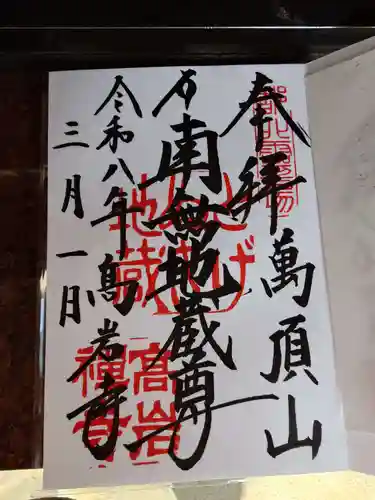 奉拝 萬頂山
南無地蔵尊
令和八年 高岩寺
三月一日
とげぬき
地蔵
高岩
禪寺